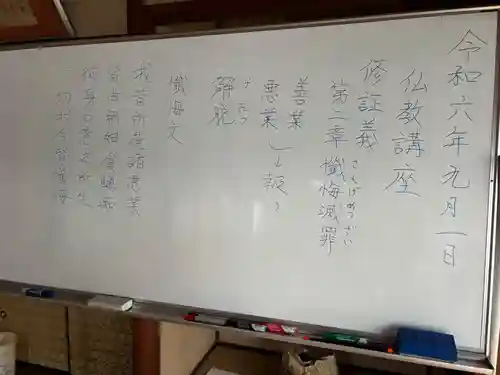 令和六年九月一日
仏教講座
修証義
第二章 懺悔滅罪
さんげめつざい
善業
悪業
報
解脱
げだつ
懺悔文
我昔所造諸悪業
皆由無始貪瞋痴
従身口意之所生
一切我今皆懺悔